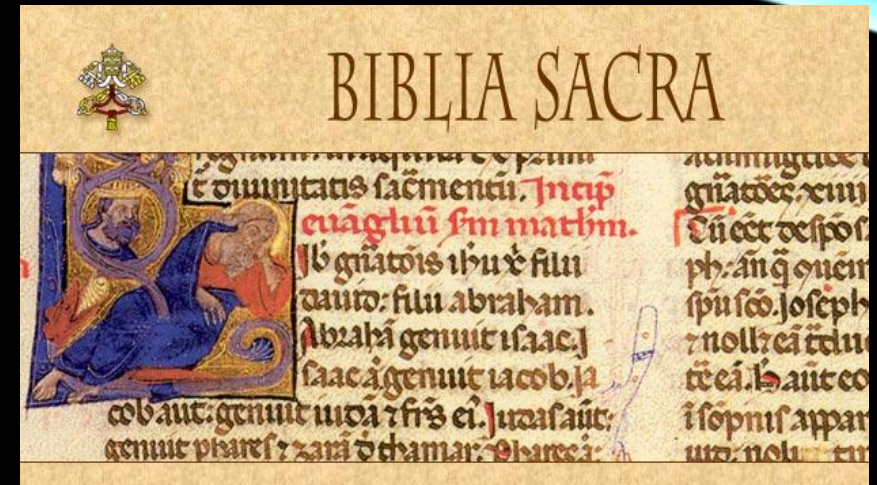 BIBLIA SACRA
⁊ diuinitatis sac̄mentū. Incip̄
euāgliū scm̄ mathm̄.
Lib gn̄atōis ihu xp̄ filii
dauid: filii abraham.
Abrahā genuit isaac. I
saac ā genuit iacob. Ia
cob aut: genuit iudā ⁊ fr̄s ei. Iudas aūt:
genuit phares ⁊ zarā d̄ thamar. Phares ā:
gn̄atōēs xiiii
Cū eēt despos
ph: an̄ q̄ ouen
sp̄u sc̄o. Joseph
⁊ noll⁊ eā t̄ du
t̄ē eā. h aūt eo
ī sōpnis appar